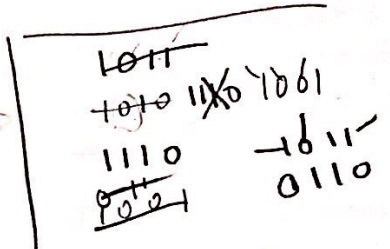 1011
1010 1110 1001
1110 1011
1001 0110